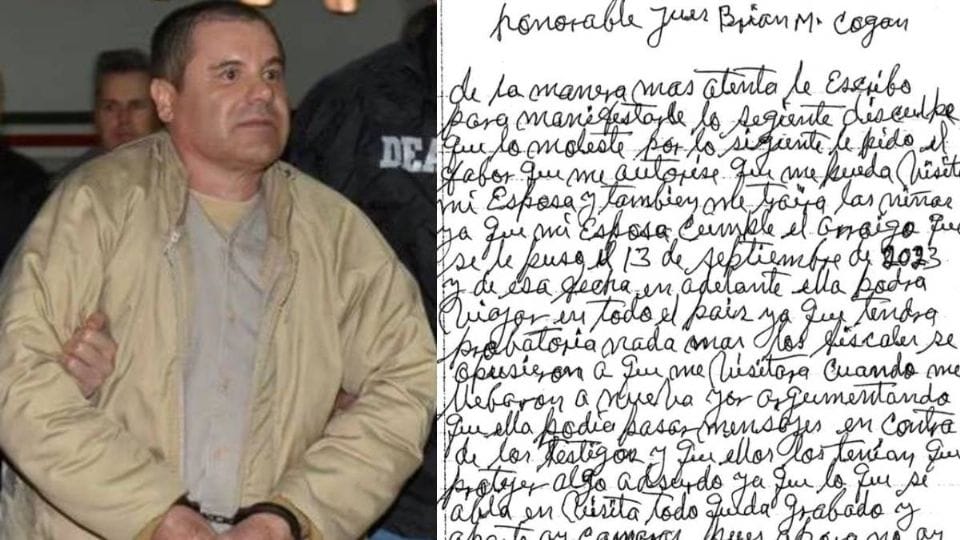 DEA
honorable Jues Brian M. Cogan
de la manera mas atenta le Escribo
para manifestarle lo segiente disculpe
que lo moleste por lo sigiente le pido el
fabor que me autorise que me pueda Visita
mi Esposa y tambien me traija las niñas
ya que mi Esposa cumple el arraigo que
se le puso el 13 de septiembre de 2023
y de esa fecha en adelante ella podra
Viajar en todo el pais ya que tendra
probatoria nada mas los fiscales se
opusieron a que me Visitara cuando me
llebaron a nueba yor argumentando
que ella podia pasar mensajes en contra
de los testigos y que ellos los tenian que
protejer algo adsurdo ya que lo que se
abla en Visita todo queda grabado y